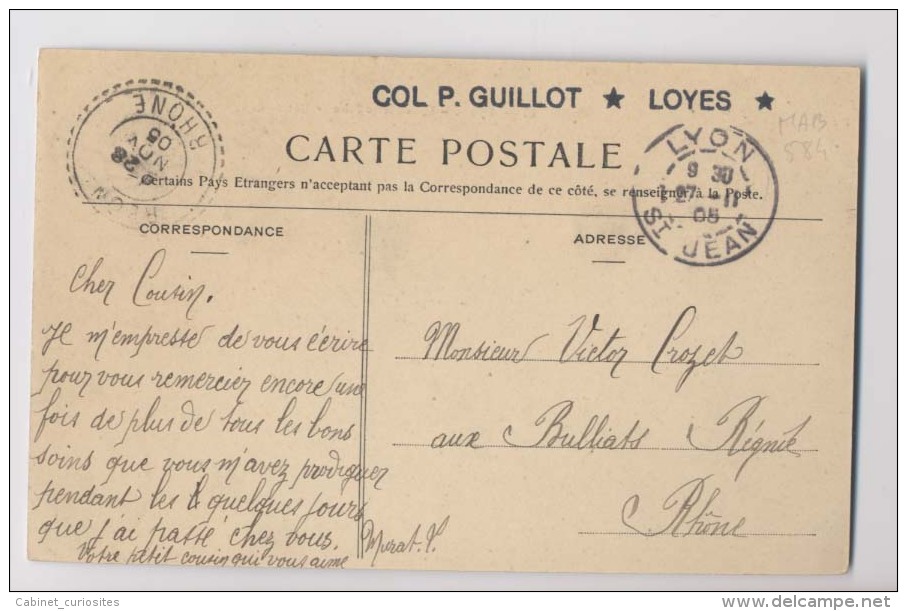 COL P. GUILLOT ★ LOYES ★
MAB
584
RHONE
28
NOV
05
CARTE POSTALE
LYON
9 30
27 -11
05
ST JEAN
Certains Pays Etrangers n'acceptant pas la Correspondance de ce côté, se renseigner à la Poste.
CORRESPONDANCE
ADRESSE
Cher Cousin.
Je m'empresse de vous écrire
pour vous remercier encore une
fois de plus de tous les bons
soins que vous m'avez prodiguer
pendant les quelques jours
que j'ai passé chez vous.
Votre petit cousin qui vous aime
Murat. V.
Monsieur Victor Crozet
aux Bulliats Régnié
Rhône
Cabinet_curiosites
delcampe.net